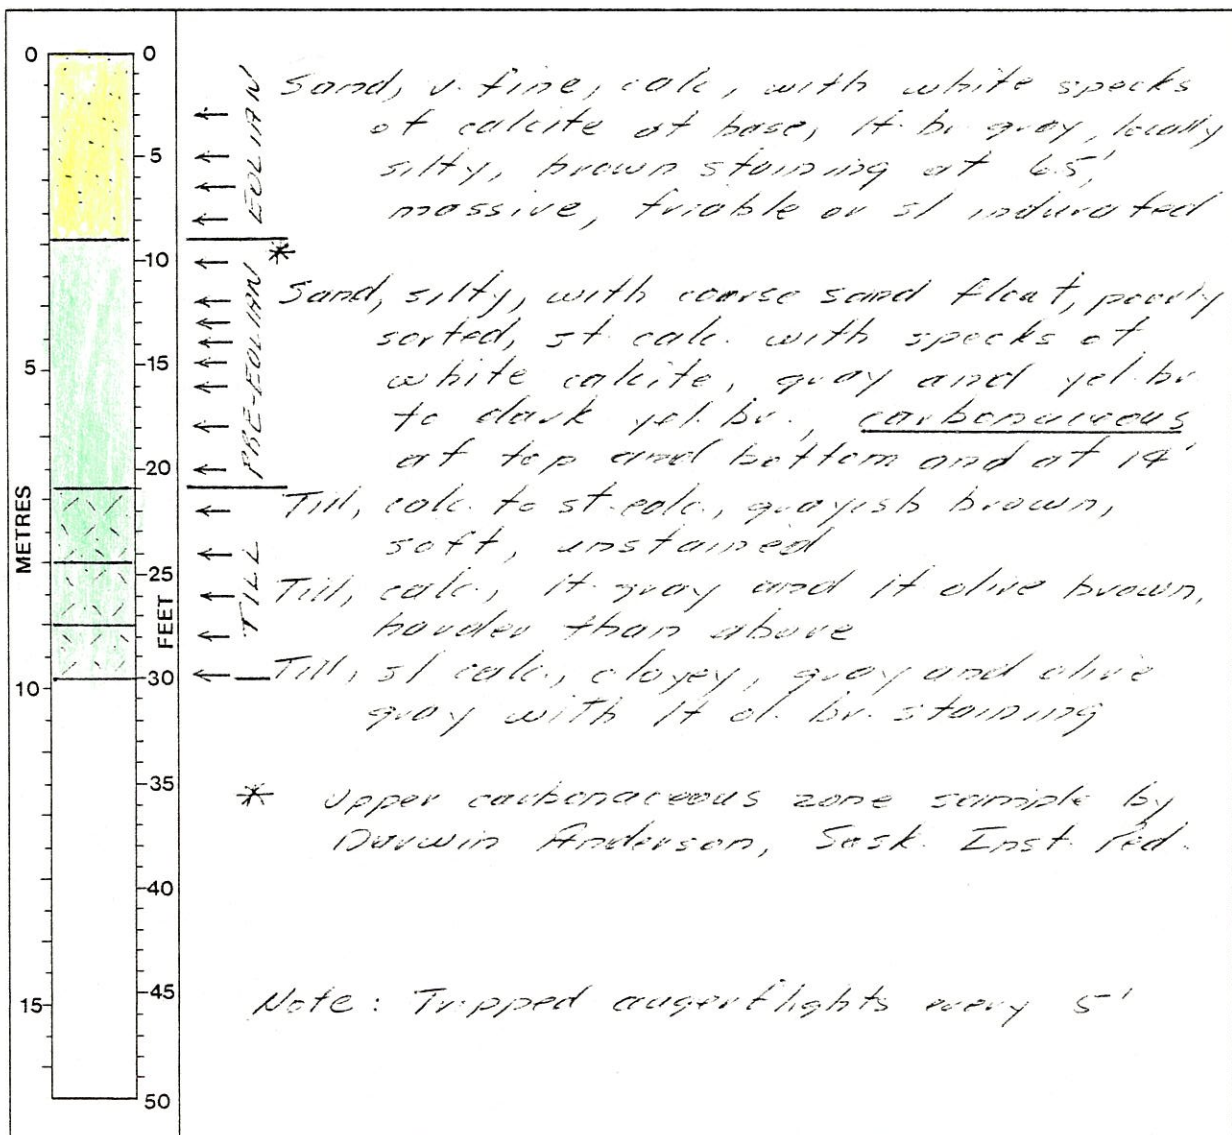 METRES
0
5
10
15
FEET
0
5
10
15
20
25
30
35
40
45
50
EOLIAN
Sand, v. fine, calc, with white specks
of calcite at base, lt. br. gray, locally
silty, brown staining at 6.5',
massive, friable or sl indurated
*
PRE-EOLIAN
Sand, silty, with coarse sand float, poorly
sorted, st. calc. with specks of
white calcite, gray and yel. br.
to dark yel. br., carbonaceous
at top and bottom and at 14'
TILL
Till, calc. to st. calc., grayish brown,
soft, unstained
Till, calc., lt. gray and lt olive brown,
harder than above
Till, sl calc., clayey, gray and olive
gray with lt ol. br. staining
* Upper carbonaceous zone sample by
Darwin Anderson, Sask. Inst. Ped.
Note: Tripped augerflights every 5'